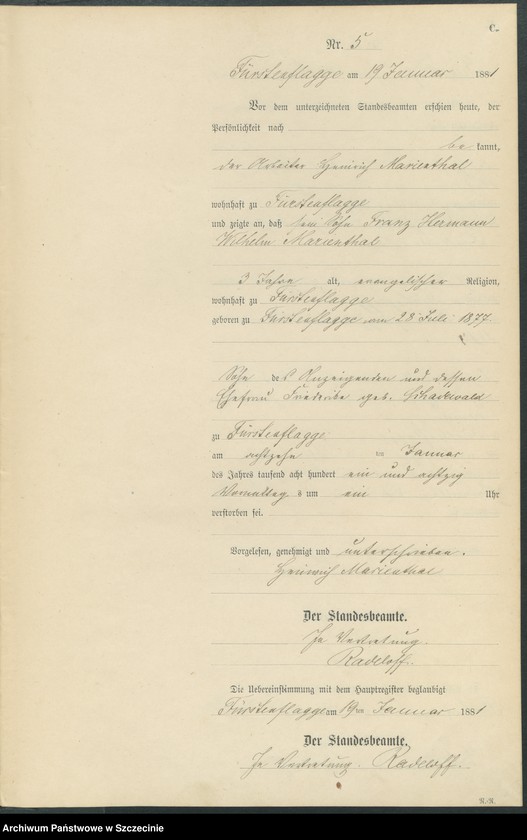 C.
Nr. 5
Fürstenflagge am 19 Januar 1881
Vor dem unterzeichneten Standesbeamten erschien heute, der
Persönlichkeit nach
be kannt,
der Arbeiter Heinrich Marienthal
wohnhaft zu Fürstenflagge
und zeigte an, daß sein Sohn Franz Hermann
Wilhelm Marienthal
3 Jahre alt, evangelischer Religion,
wohnhaft zu Fürstenflagge
geboren zu Fürstenflagge am 28 Juli 1877.
Sohn des Anzeigenden und dessen
Ehefrau Friederike geb. Schadewald
zu Fürstenflagge
am achtzehn ten Januar
des Jahrs tausend acht hundert ein und achtzig
Vormittag s um ein Uhr
verstorben sei.
Vorgelesen, genehmigt und unterschrieben.
Heinrich Marienthal
Der Standesbeamte.
In Vertretung.
Radeloff.
Die Uebereinstimmung mit dem Hauptregister beglaubigt
Fürstenflagge am 19ten Januar 1881
Der Standesbeamte.
In Vertretung. Radeloff.
Archiwum Państwowe w Szczecinie